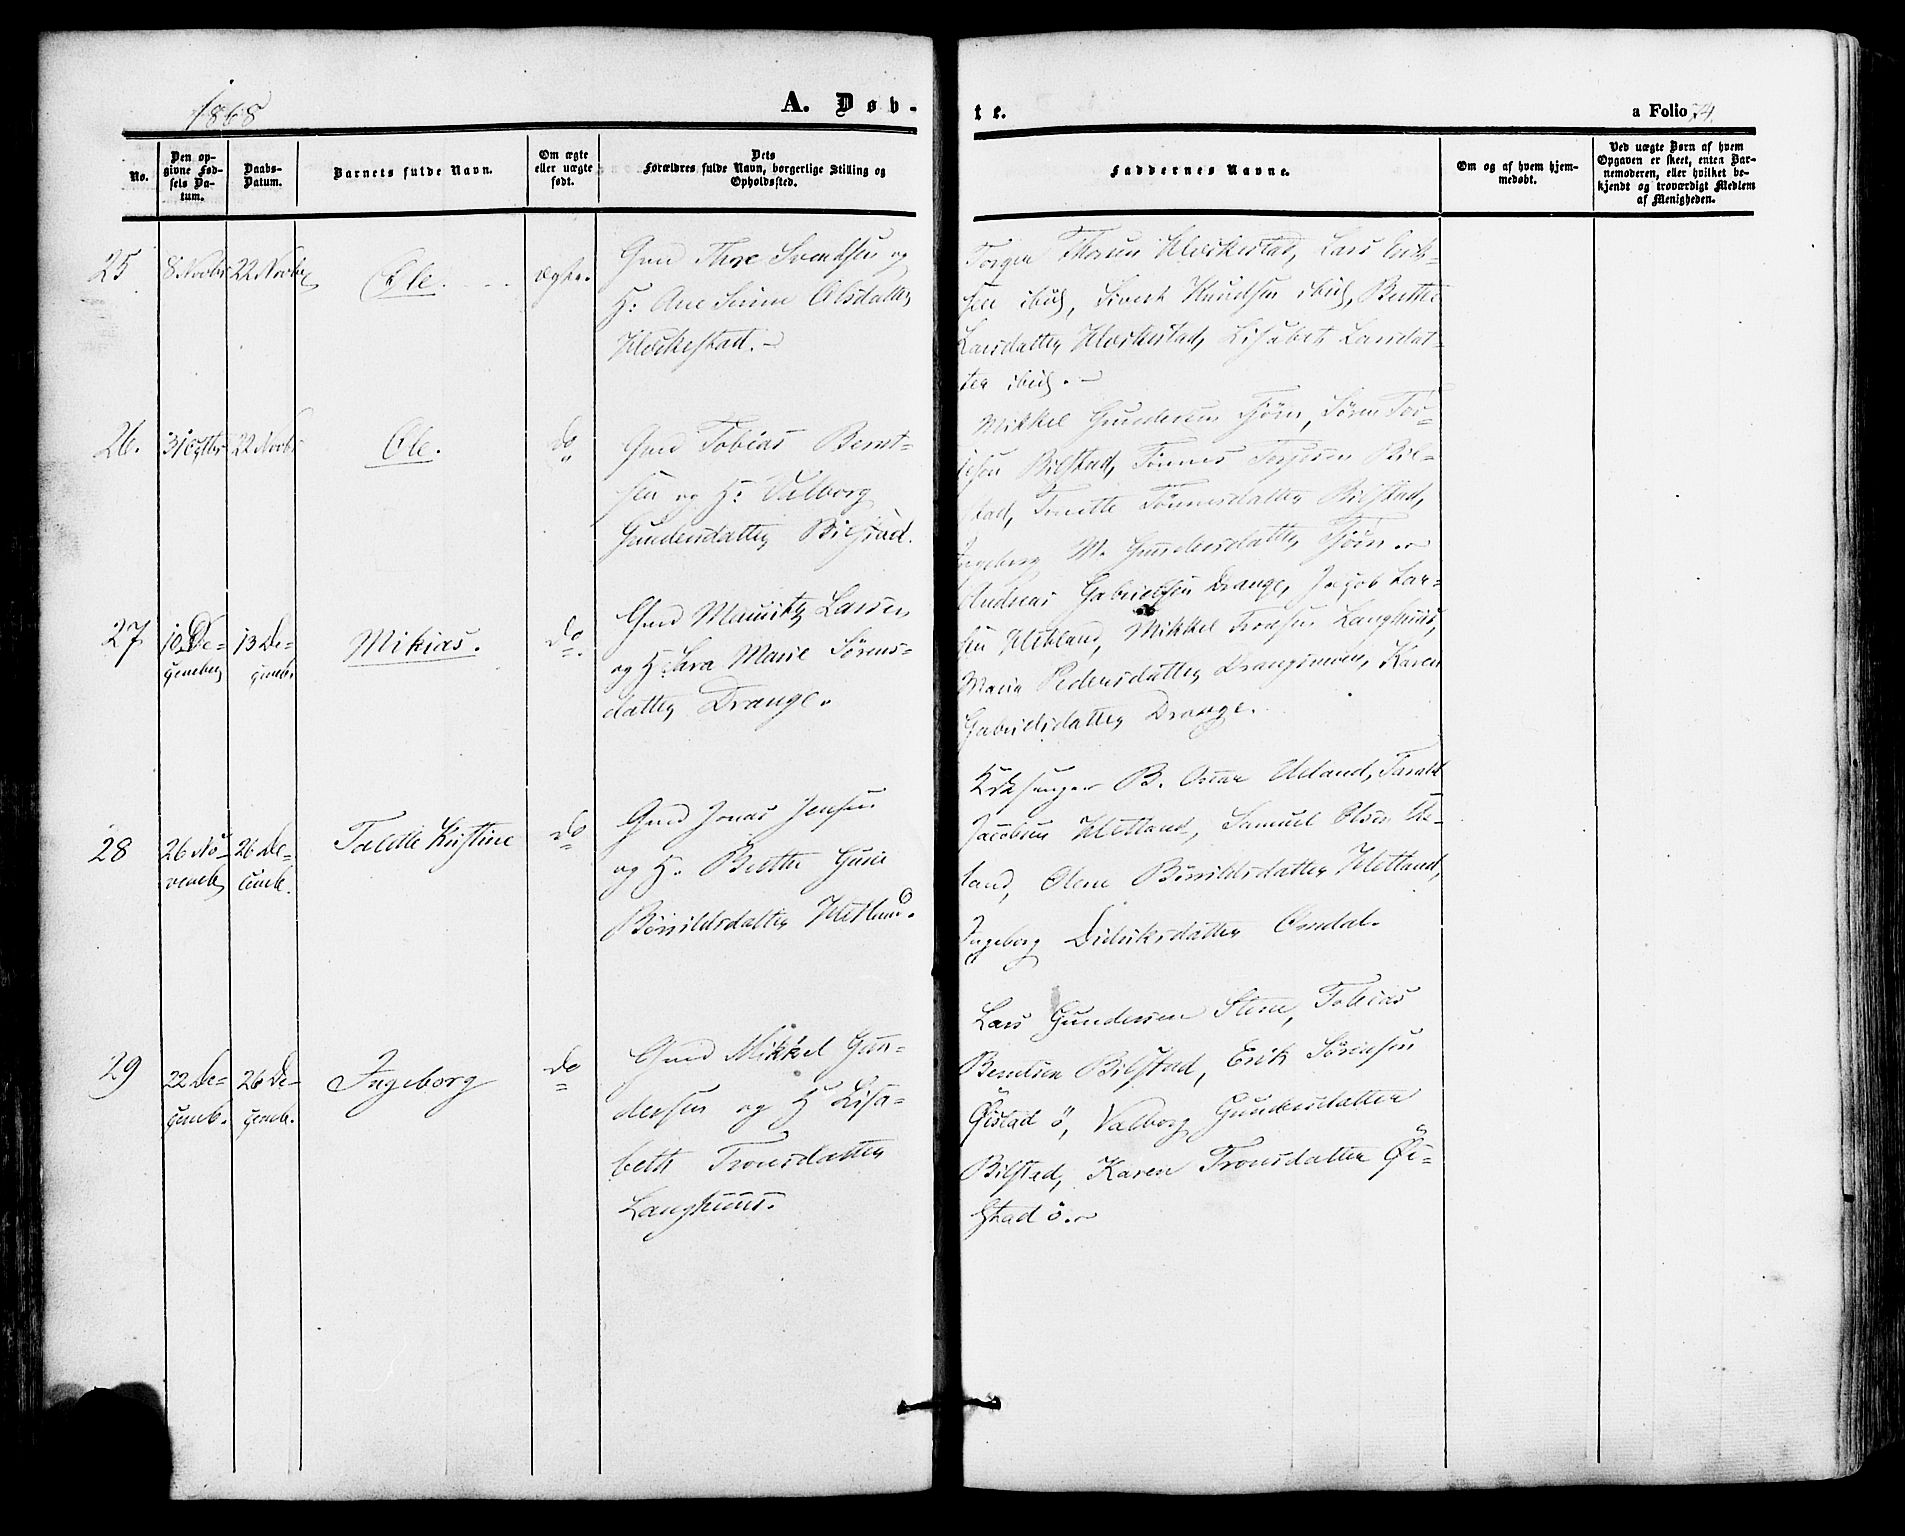 1868
A. Døb-
te.
a Folio 74.
No.
Den op-
givne Fød-
sels Da-
tum.
Daabs-
Datum.
Barnets fulde Navn.
Om ægte
eller uægte
født.
Dets
Forældres fulde Navn, borgerlige Stilling og
Opholdssted.
Faddernes Navne.
Om og af hvem hjem-
medøbt.
Ved uægte Børn af hvem
Opgaven er skeet, enten Bar-
nemoderen, eller hvilket be-
kjendt og troværdigt Medlem
af Menigheden.
25
8 Novbr
22 Novbr
Ole.
ægte.
Gmd Thore Svendsen og
H: Ane Serine Olsdatter
Torgen Thorsen Lars Erik-
sen ibid, Sivert Knudsen ibid, Berthe
Larsdatter Lisabet Larsdat-
ter ibid.
26.
22 Novbr
Ole.
do
Gmd Tobias Bernt-
sen og H: Valborg
Gundersdatter Bilstad.
Mikkel Gundersen Tjørn, Søren Tor-
jesen Bilstad, Tønnes Torjesen Bil-
stad, Tonette Tønnesdatter Bilstad,
Ingeborg M. Gundersdatter Tjørn.
27
10 De-
cember
13 De-
cemb.
Mikias.
do.
Gmd Mauritz Larsen
og H. Sara Marie Sørens-
datter Drange.
Andreas Gabrielsen Drange, Jacob Lar-
sen Mikkel Tronsen Langhuus,
Maria Pedersdatter Drangsmoen, Karen
Gabrielsdatter Drange.
28
26 No-
vemb.
26 De-
cemb.
Talette Kristine
do
Gmd Jonas Jensen
og H. Berthe Gurie
Børildsdatter Hetland.
Kirksanger B. Omar Ueland, Tarald
Jacobsen Hetland, Samuel Olsen Ue-
land, Olene Børildsdatter Hetland,
Ingeborg Didriksdatter Omdal.
29
22 De-
cemb.
26 De-
cemb.
Ingeborg
do
Gmd Mikkel Gun-
dersen og H Lisa-
beth Tronsdatter
Langhuus.
Lars Gundersen Stene, Tobias
Berntsen Bilstad, Erik Sørensen
Øistad ö, Valborg Gundersdatter
Bilstad, Karen Tronsdatter Øi-
stad ö.